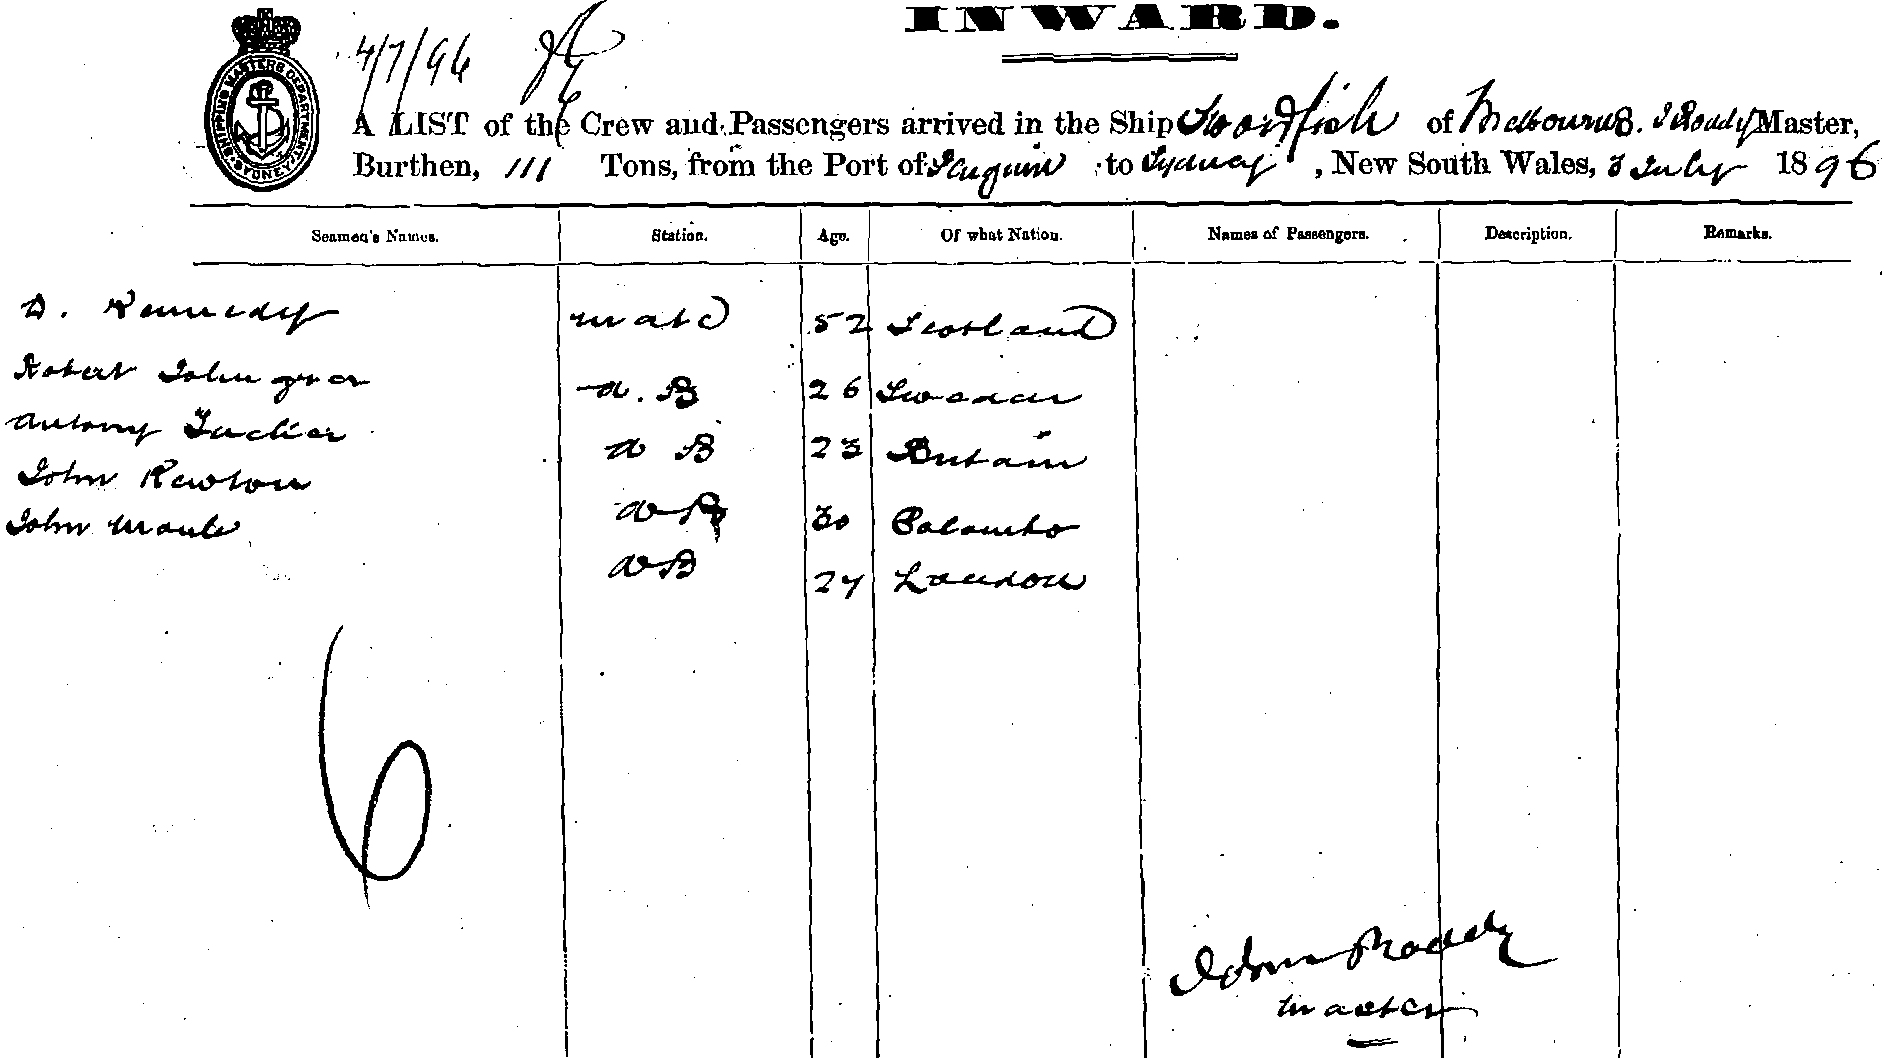 INWARD.
4/7/96
A LIST of the Crew and Passengers arrived in the Ship Swordfish of Melbourne. J Roady Master,
Burthen, 111 Tons, from the Port of Penguin to Sydney, New South Wales, 3 July 1896
SHIPPING MASTERS DEPARTMENT SYDNEY
Seamen's Names. Station. Age. Of what Nation. Names of Passengers. Description. Remarks.
D. Kennedy mate 52 Scotland
Robert a.B 26 Sweden
Antony a B 23 Britain
John aB 30 Colombo
John aB 27 London
6
John Roady
Master